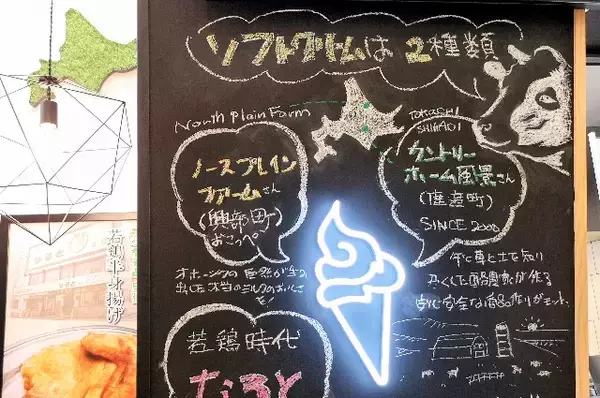 ソフトクリームは2種類
North Plain Farm
ノースプレイン
ファームさん
(興部町)
おこっぺ
オホーツクの自然が生み
出した本当のミルクのおいしさ
を!
TAKASHI
SHIKAOI
カントリー
ホーム風景さん
SINCE 2000
安心安全な商品作りがモットー。
若鶏時代
なると
若鶏半身揚げ